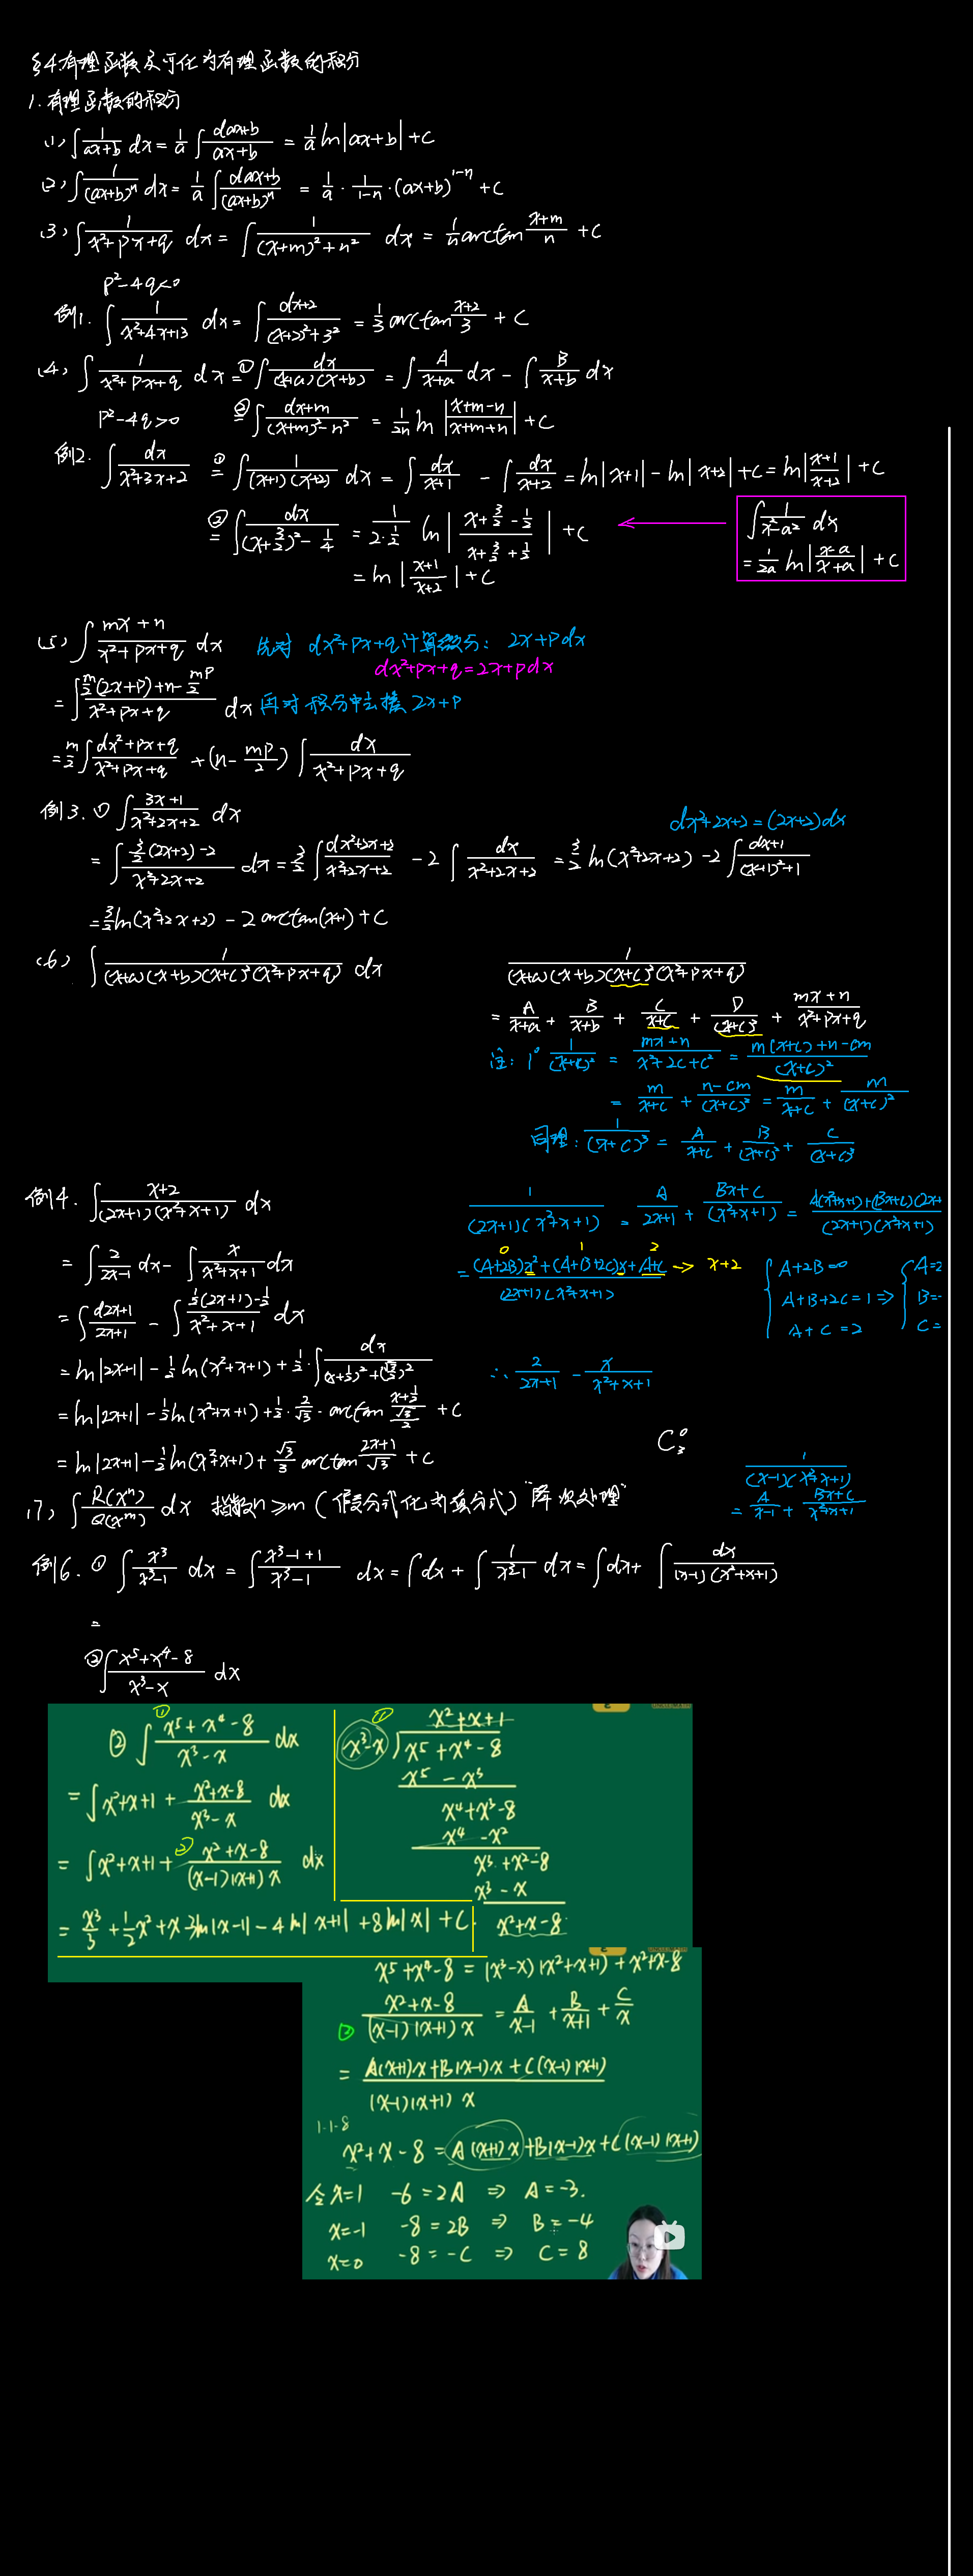 §4.有理函数及可化为有理函数的积分
1.有理函数的积分
(1) ∫ 1/(ax+b) dx = 1/a ∫ dax+b/(ax+b) = 1/a ln|ax+b| + C
(2) ∫ 1/(ax+b)^n dx = 1/a ∫ dax+b/(ax+b)^n = 1/a · 1/(1-n) · (ax+b)^(1-n) + C
(3) ∫ 1/(x²+px+q) dx = ∫ 1/((x+m)²+n²) dx = 1/n arctan (x+m)/n + C
p²-4q<0
例1. ∫ 1/(x²+4x+13) dx = ∫ dx+2/((x+2)²+3²) = 1/3 arctan (x+2)/3 + C
(4) ∫ 1/(x²+px+q) dx =① ∫ dx/((x+a)(x+b)) = ∫ A/(x+a) dx - ∫ B/(x+b) dx
p²-4q>0 ②= ∫ dx+m/((x+m)²-n²) = 1/2n ln |(x+m-n)/(x+m+n)| + C
例2. ∫ dx/(x²+3x+2) ①= ∫ 1/((x+1)(x+2)) dx = ∫ dx/(x+1) - ∫ dx/(x+2) = ln|x+1| - ln|x+2| + C = ln|(x+1)/(x+2)| + C
②= ∫ dx/((x+3/2)²-1/4) = 1/(2·1/2) ln |(x+3/2-1/2)/(x+3/2+1/2)| + C
= ln |(x+1)/(x+2)| + C
∫ 1/(x²-a²) dx
= 1/2a ln|(x-a)/(x+a)| + C
(5) ∫ (mx+n)/(x²+px+q) dx 先对 dx²+px+q计算微分: 2x+pdx
dx²+px+q=2x+pdx
= ∫ (m/2(2x+p)+n-mp/2)/(x²+px+q) dx 再对积分中去凑 2x+p
= m/2 ∫ dx²+px+q/(x²+px+q) + (n-mp/2) ∫ dx/(x²+px+q)
例3. ① ∫ (3x+1)/(x²+2x+2) dx
dx²+2x+2=(2x+2)dx
= ∫ (3/2(2x+2)-2)/(x²+2x+2) dx = 3/2 ∫ dx²+2x+2/(x²+2x+2) - 2 ∫ dx/(x²+2x+2) = 3/2 ln(x²+2x+2) - 2 ∫ dx+1/((x+1)²+1)
= 3/2 ln(x²+2x+2) - 2 arctan(x+1) + C
(6) ∫ 1/((x+a)(x+b)(x+c)²(x²+px+q)) dx
1/((x+a)(x+b)(x+c)²(x²+px+q))
= A/(x+a) + B/(x+b) + C/(x+c) + D/(x+c)² + (mx+n)/(x²+px+q)
注: 1° 1/(x+c)² = (mx+n)/(x²+2c+c²) = (m(x+c)+n-cm)/(x+c)²
= m/(x+c) + (n-cm)/(x+c)² = m/(x+c) + m/(x+c)²
同理: 1/(x+c)³ = A/(x+c) + B/(x+c)² + C/(x+c)³
例4. ∫ (x+2)/((2x+1)(x²+x+1)) dx
= ∫ 2/(2x-1) dx - ∫ x/(x²+x+1) dx
= ∫ d2x+1/(2x+1) - ∫ (1/2(2x+1)-1/2)/(x²+x+1) dx
= ln|2x+1| - 1/2 ln(x²+x+1) + 1/2 · ∫ dx/((x+1/2)²+(√3/2)²)
= ln|2x+1| - 1/2 ln(x²+x+1) + 1/2 · 2/√3 · arctan (x+1/2)/(√3/2) + C
= ln|2x+1| - 1/2 ln(x²+x+1) + √3/3 arctan (2x+1)/√3 + C
1/((2x+1)(x²+x+1)) = A/(2x+1) + (Bx+C)/(x²+x+1) = A(x²+x+1)+(Bx+C)(2x+/(2x+1)(x²+x+1)
0 1 2
= ((A+2B)x²+(A+B+2C)x+A+C)/((2x+1)(x²+x+1)) → x+2
A+2B=0
A+B+2C=1 ⇒
A+C=2
A=2
B=-
C=
∴ 2/(2x+1) - x/(x²+x+1)
C₃⁰
1/((x-1)(x²+x+1))
= A/(x-1) + (Bx+C)/(x²+x+1)
(7) ∫ R(x^n)/Q(x^m) dx 指数n≥m (假分式化为真分式) "降次处理"
例6. ① ∫ x³/(x³-1) dx = ∫ (x³-1+1)/(x³-1) dx = ∫ dx + ∫ 1/(x³-1) dx = ∫ dx + ∫ dx/((x-1)(x²+x+1))
=
② ∫ (x⁵+x⁴-8)/(x³-x) dx
① ② ∫ (x⁵+x⁴-8)/(x³-x) dx
= ∫ x²+x+1 + (x²+x-8)/(x³-x) dx
= ∫ x²+x+1 + ② (x²+x-8)/((x-1)(x+1)x) dx
= x³/3 + 1/2 x² + x - 3ln|x-1| - 4ln|x+1| + 8ln|x| + C.
① x²+x+1
x³-x ) x⁵+x⁴-8
x⁵ - x³
x⁴+x³-8
x⁴ - x²
x³+x²-8
x³ - x
x²+x-8
x⁵+x⁴-8 = (x³-x)(x²+x+1) + x²+x-8
② (x²+x-8)/((x-1)(x+1)x) = A/(x-1) + B/(x+1) + C/x
= (A(x+1)x+B(x-1)x+C(x-1)(x+1))/((x-1)(x+1)x)
1-1-8
x²+x-8 = A(x+1)x+B(x-1)x+C(x-1)(x+1)
令x=1 -6=2A ⇒ A=-3.
x=-1 -8=2B ⇒ B=-4
x=0 -8=-C ⇒ C=8